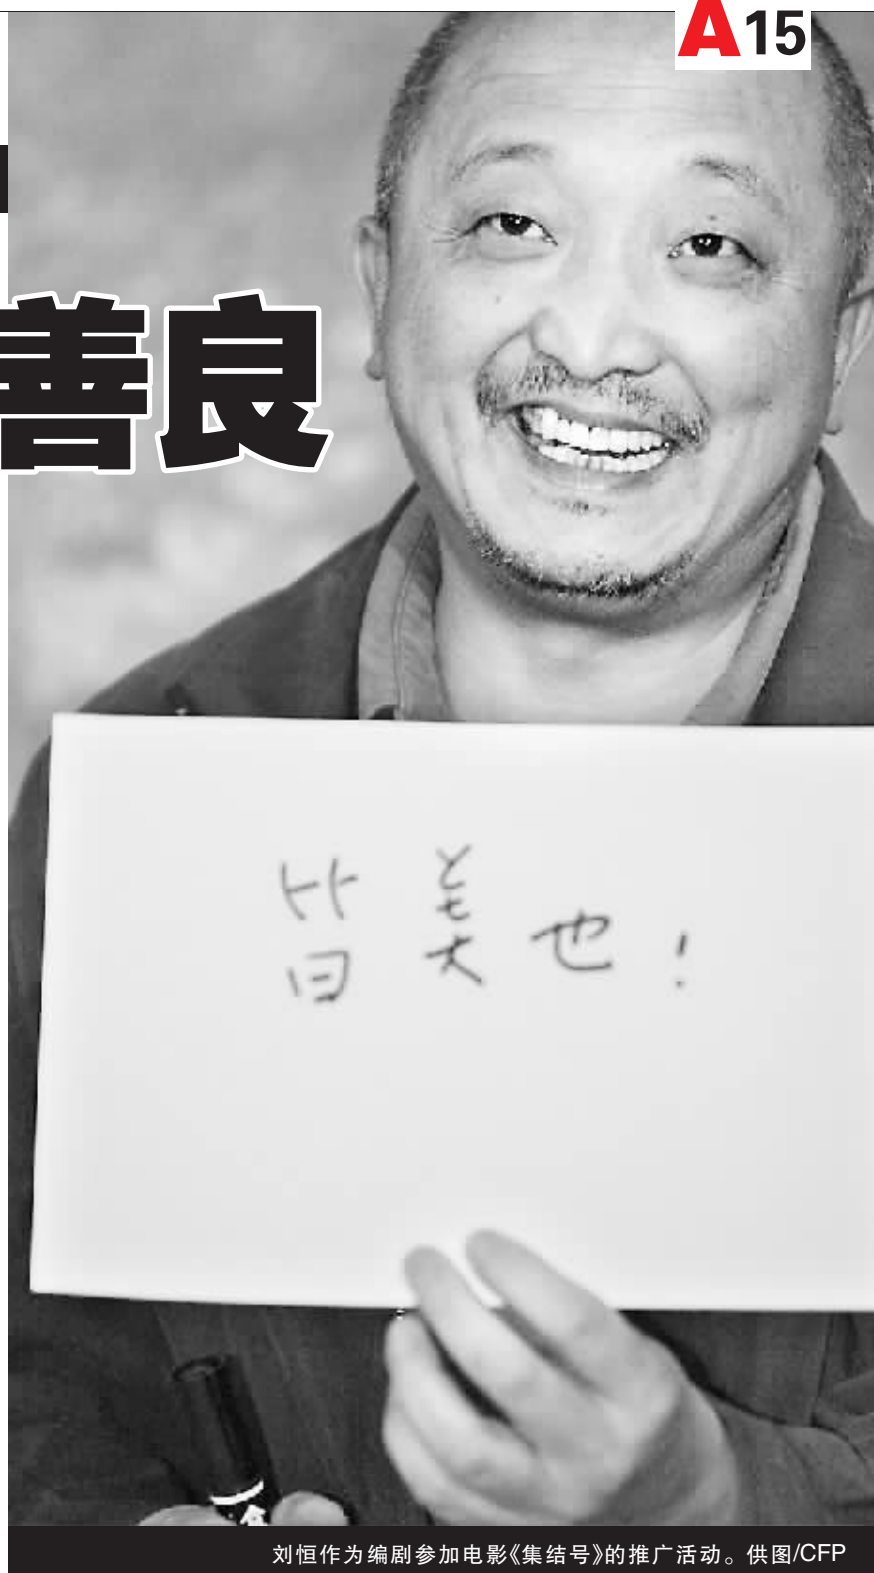 A15
善良
皆美也！
刘恒作为编剧参加电影《集结号》的推广活动。供图/CFP